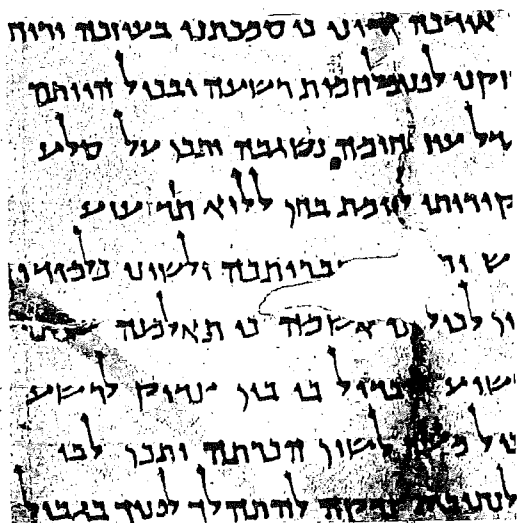 אודכה אדוני כי סמכתני בעוזכה ורוח
זקני לפני מלחמות רשעה ובכול הוותם
דל עוז כחומה נשגבה ותכן על סלע
קירותי לחומת בחן ללוא תזדעזע
בבריתכה ולשוני כלמודיך
ון לכול בני אשמה כי תאלמנה שפתי
שיע להבדיל בי בין צדיק לרשע
כול מענה לשון הכרתה ותכן לבי
לנתיבות צדקה להתהלך לפניך בגבול